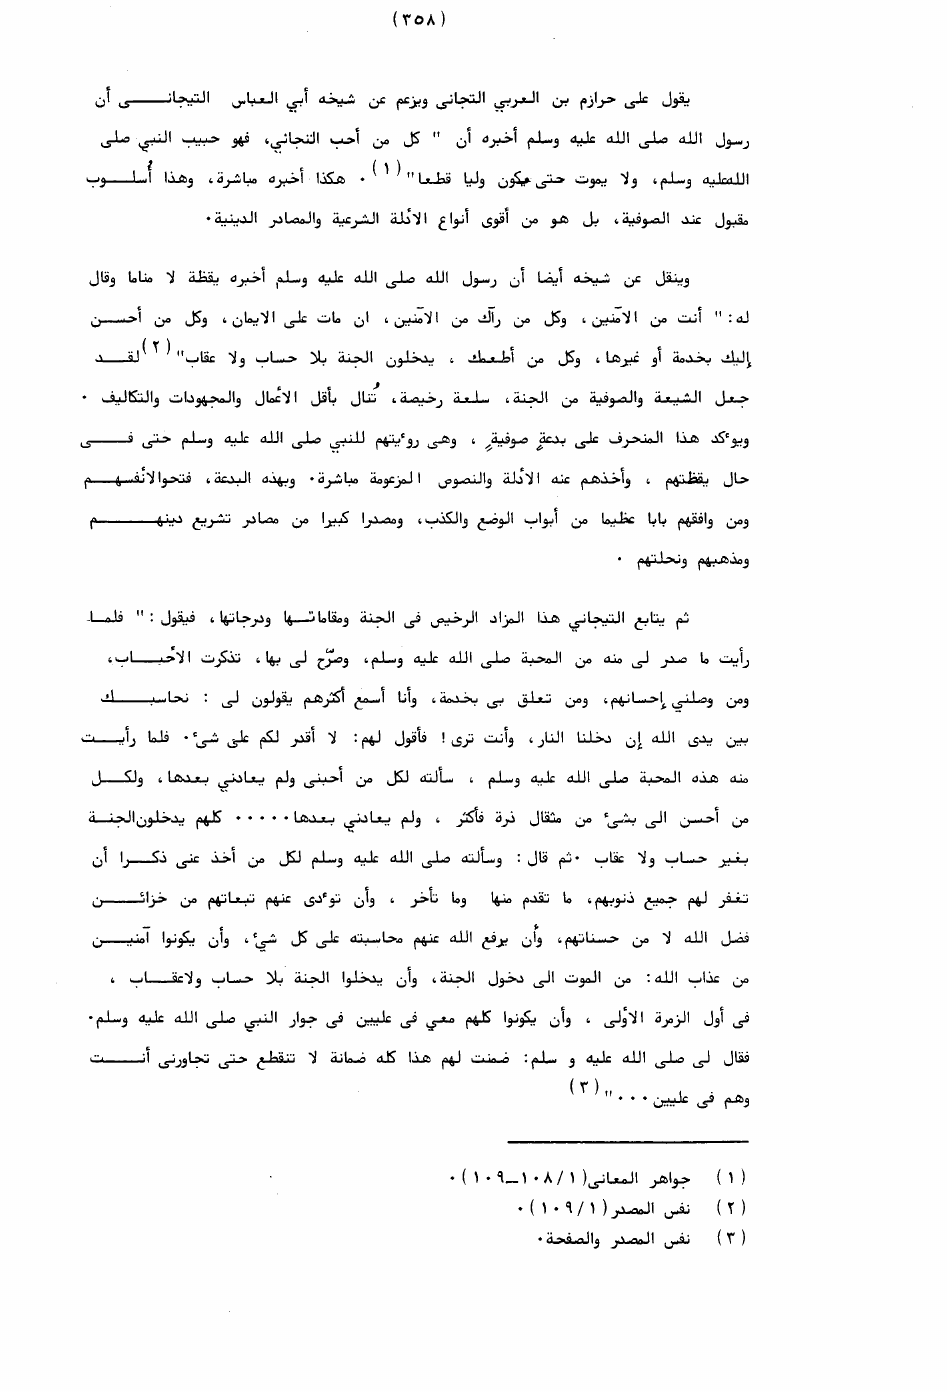 (٣٥٨)
يقول على حرازم بن العربي التجانى ويزعم عن شيخه أبي العباس التيجانى أن
رسول الله صلى الله عليه وسلم أخبره أن " كل من أحب التجاني، فهو حبيب النبي صلى
الله عليه وسلم، ولا يموت حتى يكون وليا قطعا"(١)٠ هكذا أخبره مباشرة، وهذا أُسلوب
مقبول عند الصوفية، بل هو من أقوى أنواع الأدلة الشرعية والمصادر الدينية٠
وينقل عن شيخه أيضا أن رسول الله صلى الله عليه وسلم أخبره يقظة لا مناما وقال
له:" أنت من الآمنين، وكل من رآك من الآمنين، ان مات على الايمان، وكل من أحسن
إليك بخدمة أو غيرها، وكل من أطعمك ، يدخلون الجنة بلا حساب ولا عقاب"(٢) لقد
جعل الشيعة والصوفية من الجنة، سلعة رخيصة، تُنال بأقل الأعمال والمجهودات والتكاليف ٠
ويوٴكد هذا المنحرف على بدعةٍ صوفيةٍ ، وهى روٴيتهم للنبي صلى الله عليه وسلم حتى فى
حال يقظتهم ، وأخذهم عنه الأدلة والنصوص المزعومة مباشرة٠ وبهذه البدعة، فتحوا لأنفسهم
ومن وافقهم بابا عظيما من أبواب الوضع والكذب، ومصدرا كبيرا من مصادر تشريع دينهم
ومذهبهم ونحلتهم ٠
ثم يتابع التيجاني هذا المزاد الرخيص فى الجنة ومقاماتها ودرجاتها، فيقول:" فلما
رأيت ما صدر لى منه من المحبة صلى الله عليه وسلم، وصرّح لى بها، تذكرت الأحباب،
ومن وصلني إحسانهم، ومن تعلق بى بخدمة، وأنا أسمع أكثرهم يقولون لى : نحاسبك
بين يدى الله إن دخلنا النار، وأنت ترى! فأقول لهم: لا أقدر لكم على شىٴ٠ فلما رأيت
منه هذه المحبة صلى الله عليه وسلم ، سألته لكل من أحبنى ولم يعادني بعدها، ولكل
من أحسن الى بشىٴ من مثقال ذرة فأكثر ، ولم يعادني بعدها٠٠٠٠٠ كلهم يدخلون الجنة
بغير حساب ولا عقاب ٠ثم قال: وسألته صلى الله عليه وسلم لكل من أخذ عنى ذكرا أن
تغفر لهم جميع ذنوبهم، ما تقدم منها وما تأخر ، وأن توٴدى عنهم تبعاتهم من خزائن
فضل الله لا من حسناتهم، وأن يرفع الله عنهم محاسبته على كل شىٴ، وأن يكونوا آمنين
من عذاب الله: من الموت الى دخول الجنة، وأن يدخلوا الجنة بلا حساب ولاعقاب ،
فى أول الزمرة الأولى ، وأن يكونوا كلهم معي فى عليين فى جوار النبي صلى الله عليه وسلم٠
فقال لى صلى الله عليه و سلم: ضمنت لهم هذا كله ضمانة لا تنقطع حتى تجاورنى أنت
وهم فى عليين٠٠٠"(٣)
(١) جواهر المعانى(١٠٨/١–١٠٩)٠
(٢) نفس المصدر(١٠٩/١)٠
(٣) نفس المصدر والصفحة٠